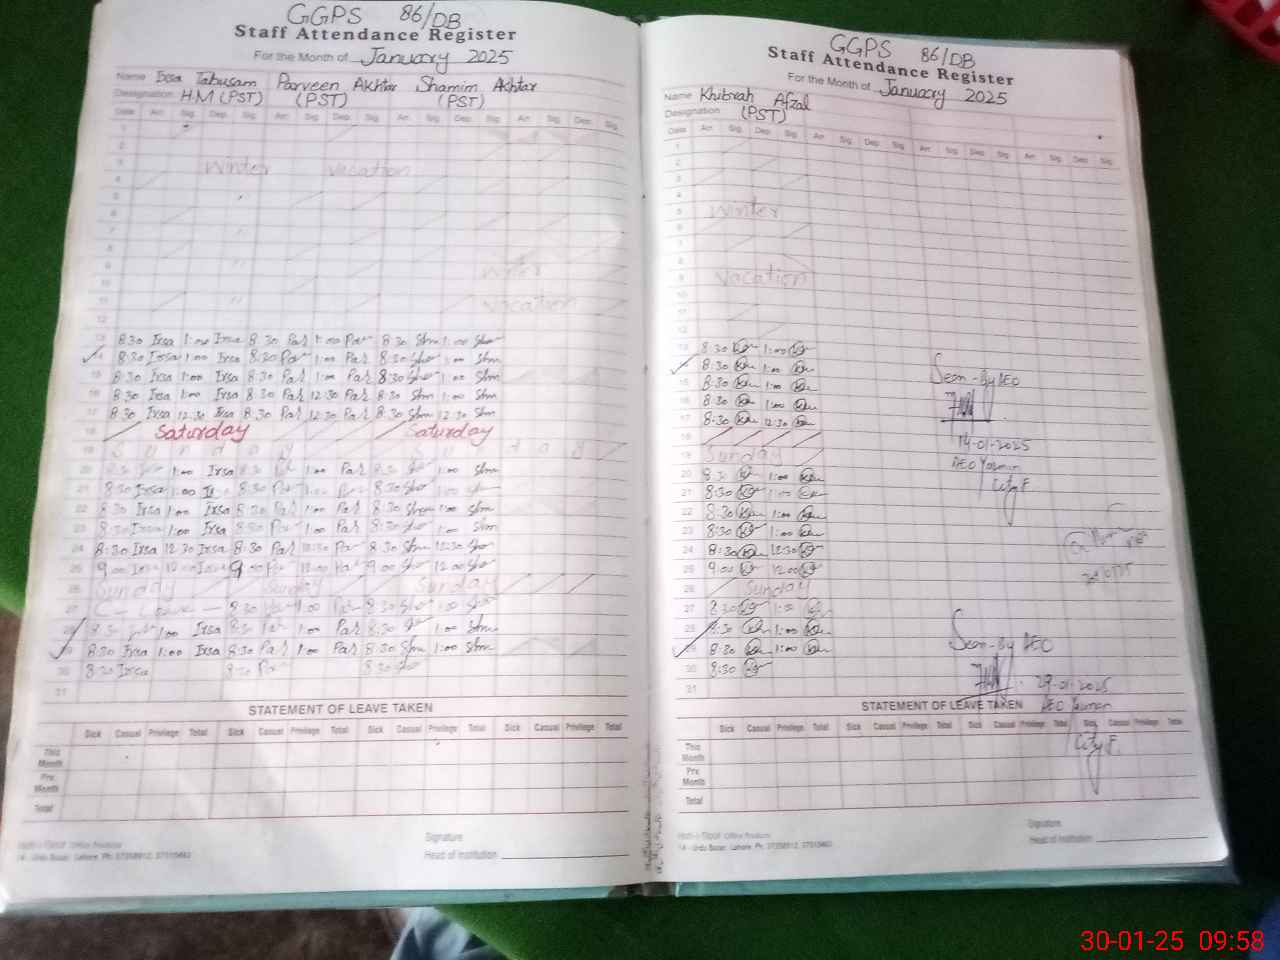 GGPS 86/DB
Staff Attendance Register
For the Month of January 2025
Name Irsa Tabusam Parveen Akhtar Shamim Akhtar
Designation H.M (PST) (PST) (PST)
Date Arr. Sig. Dep. Sig. Arr. Sig. Dep. Sig. Arr. Sig. Dep. Sig. Arr. Sig. Dep. Sig.
1
2
3 Winter Vacation
4
5
6
7
8
9 Winter
10
11 Vacation
12
13 8:30 Irsa 1:00 Irsa 8:30 Par 1:00 Par 8:30 Shm 1:00 Shm
14 8:30 Irsa 1:00 Irsa 8:30 Par 1:00 Par 8:30 Shm 1:00 Shm
15 8:30 Irsa 1:00 Irsa 8:30 Par 1:00 Par 8:30 Shm 1:00 Shm
16 8:30 Irsa 1:00 Irsa 8:30 Par 1:00 Par 8:30 Shm 1:00 Shm
17 8:30 Irsa 12:30 Irsa 8:30 Par 12:30 Par 8:30 Shm 12:30 Shm
18 Saturday Saturday
19 Sunday Sunday
20 8:30 1:00 Irsa 8:30 Par 1:00 Par 8:30 Shm 1:00 Shm
21 8:30 Irsa 1:00 8:30 Par 1:00 Par 8:30 Shm 1:00 Shm
22 8:30 Irsa 1:00 Irsa 8:30 Par 1:00 Par 8:30 Shm 1:00 Shm
23 8:30 Irsa 1:00 Irsa 8:30 Par 1:00 Par 8:30 Shm 1:00 Shm
24 8:30 Irsa 12:30 Irsa 8:30 Par 12:30 Par 8:30 Shm 12:30 Shm
25 9:00 Irsa 12:00 Irsa 9:00 Par 12:00 Par 9:00 Shm 12:00 Shm
26 Sunday Sunday Sunday
27 C- Leave - 8:30 Par 1:00 Par 8:30 Shm 1:00 Shm
28 8:30 1:00 Irsa 8:30 Par 1:00 Par 8:30 Shm 1:00 Shm
29 8:30 Irsa 1:00 Irsa 8:30 Par 1:00 Par 8:30 Shm 1:00 Shm
30 8:30 Irsa 8:30 Par 8:30 Shm
31
STATEMENT OF LEAVE TAKEN
Sick Casual Privilege Total Sick Casual Privilege Total Sick Casual Privilege Total Sick Casual Privilege Total
This Month
Prv. Month
Total
Signature
Head of Institution
Office Products
14 - Urdu Bazar, Lahore. Ph: 37358912, 37315462
GGPS 86/DB
Staff Attendance Register
For the Month of January 2025
Name Khubrah Afzal
Designation (PST)
Date Arr. Sig. Dep. Sig. Arr. Sig. Dep. Sig. Arr. Sig. Dep. Sig. Arr. Sig. Dep. Sig.
1
2
3
4
5 Winter
6
7
8
9 Vacation
10
11
12
13 8:30 1:00
14 8:30 1:00
15 8:30 1:00
16 8:30 1:00
17 8:30 12:30
18
19 Sunday
20 8:30 1:00
21 8:30 1:00
22 8:30 1:00
23 8:30 1:00
24 8:30 12:30
25 9:00 12:00
26 Sunday
27 8:30 1:00
28 8:30 1:00
29 8:30 1:00
30 8:30
31
Seen-By AEO
14-01-2025
AEO Yasmin
City F
Seen-By AEO
29-01-2025
AEO Yasmin
City F
STATEMENT OF LEAVE TAKEN
Sick Casual Privilege Total Sick Casual Privilege Total Sick Casual Privilege Total Sick Casual Privilege Total
This Month
Prv. Month
Total
Signature
Head of Institution
Office Products
14 - Urdu Bazar, Lahore. Ph: 37358912, 37315462
30-01-25 09:58